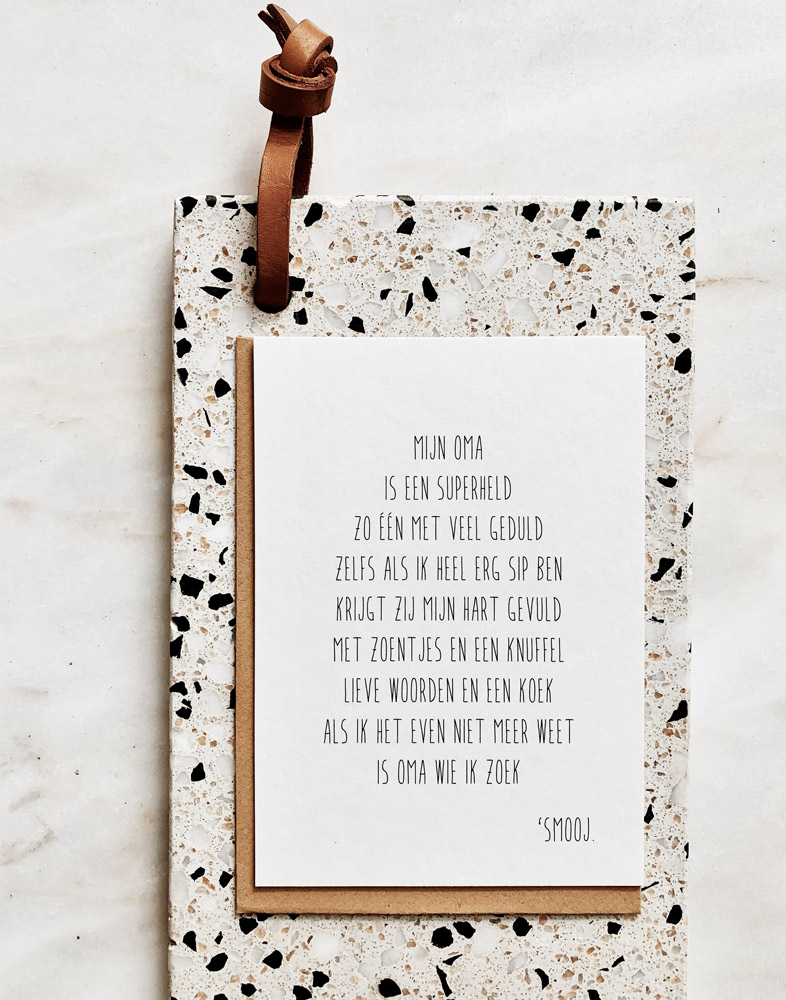 MIJN OMA
IS EEN SUPERHELD
ZO ÉÉN MET VEEL GEDULD
ZELFS ALS IK HEEL ERG SIP BEN
KRIJGT ZIJ MIJN HART GEVULD
MET ZOENTJES EN EEN KNUFFEL
LIEVE WOORDEN EN EEN KOEK
ALS IK HET EVEN NIET MEER WEET
IS OMA WIE IK ZOEK
‘SMOOJ.